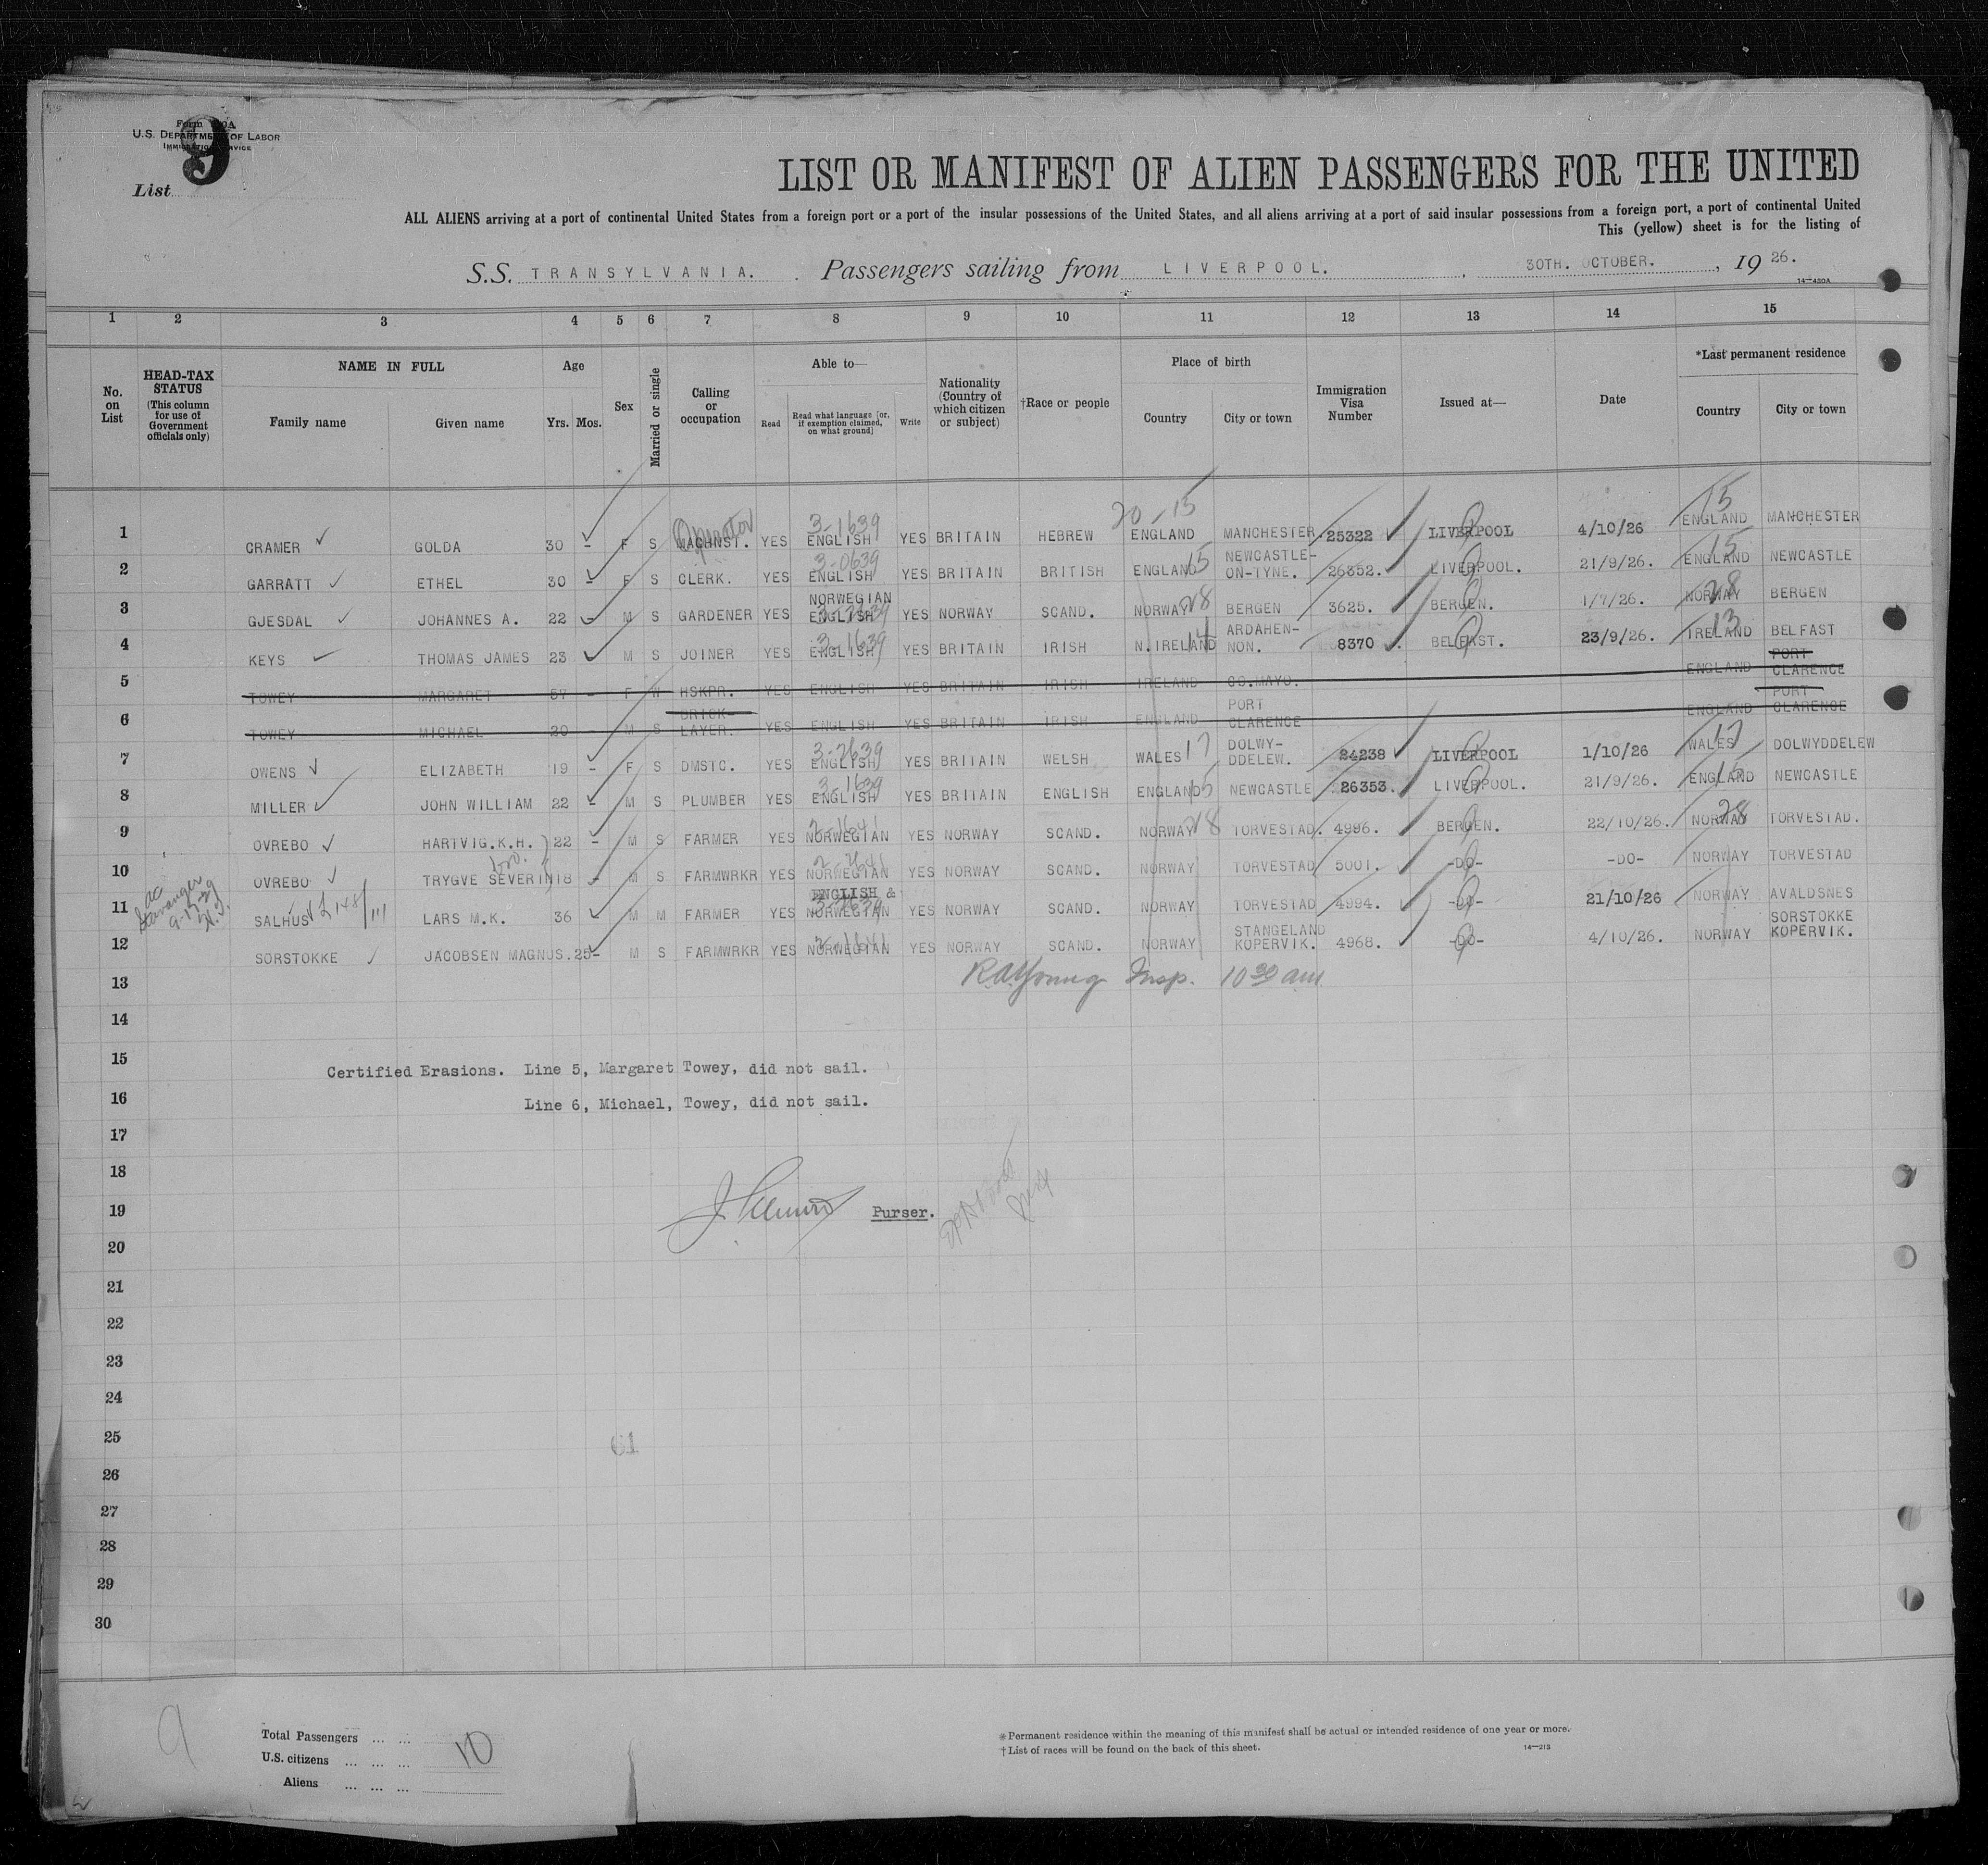 Form 500A
U.S. DEPARTMENT OF LABOR
IMMIGRATION SERVICE
List 9
LIST OR MANIFEST OF ALIEN PASSENGERS FOR THE UNITED
ALL ALIENS arriving at a port of continental United States from a foreign port or a port of the insular possessions of the United States, and all aliens arriving at a port of said insular possessions from a foreign port, a port of continental United
This (yellow) sheet is for the listing of
S.S. TRANSYLVANIA. Passengers sailing from LIVERPOOL. , 30TH. OCTOBER. , 19 26.
14—430A
1 2 3 4 5 6 7 8 9 10 11 12 13 14 15
No. on List
HEAD-TAX STATUS (This column for use of Government officials only)
NAME IN FULL
Family name Given name
Age
Yrs. Mos.
Sex
Married or single
Calling or occupation
Able to—
Read Read what language [or, if exemption claimed, on what ground] Write
Nationality (Country of which citizen or subject)
†Race or people
Place of birth
Country City or town
Immigration Visa Number
Issued at—
Date
*Last permanent residence
Country City or town
1 CRAMER GOLDA 30 – F S MACHNST. Operator YES 3-1639 ENGLISH YES BRITAIN HEBREW 20-15 ENGLAND MANCHESTER. 25322 LIVERPOOL 4/10/26 15 ENGLAND MANCHESTER
2 GARRATT ETHEL 30 – F S CLERK. YES 3-0639 ENGLISH YES BRITAIN BRITISH ENGLAND 15 NEWCASTLE-ON-TYNE. 26352. LIVERPOOL. 21/9/26. 15 ENGLAND NEWCASTLE
3 GJESDAL JOHANNES A. 22 – M S GARDENER YES NORWEGIAN ENGLISH YES NORWAY SCAND. NORWAY 28 BERGEN 3625. BERGEN. 1/7/26. NORWAY 28 BERGEN
4 KEYS THOMAS JAMES 23 M S JOINER YES 3-1639 ENGLISH YES BRITAIN IRISH N.IRELAND 14 ARDAHEN-NON. 8370 BELFAST. 23/9/26. 13 IRELAND BELFAST
5 TOWEY MARGARET 57 – F W HSKPR. YES ENGLISH YES BRITAIN IRISH IRELAND CO.MAYO. ENGLAND PORT CLARENCE
6 TOWEY MICHAEL 20 – M S BRICK-LAYER. YES ENGLISH YES BRITAIN IRISH ENGLAND PORT CLARENCE ENGLAND PORT CLARENCE
7 OWENS ELIZABETH 19 – F S DMSTC. YES 3-2639 ENGLISH YES BRITAIN WELSH WALES 17 DOLWY-DDELEW. 24238 LIVERPOOL 1/10/26 WALES 17 DOLWYDDELEW
8 MILLER JOHN WILLIAM 22 – M S PLUMBER YES 3-1639 ENGLISH YES BRITAIN ENGLISH ENGLAND 15 NEWCASTLE 26353. LIVERPOOL. 21/9/26. 15 ENGLAND NEWCASTLE
9 OVREBO HARTVIG.K.H. 22 – M S FARMER YES 2-1641 NORWEGIAN YES NORWAY SCAND. NORWAY 28 TORVESTAD. 4996. BERGEN. 22/10/26. NORWAY 28 TORVESTAD.
10 OVREBO TRYGVE SEVERIN 18 – M S FARMWRKR YES 2-2641 NORWEGIAN YES NORWAY SCAND. NORWAY TORVESTAD 5001. -DO- -DO- NORWAY TORVESTAD
bro.
11 SALHUS LARS M.K. 36 M M FARMER YES ENGLISH & NORWEGIAN YES NORWAY SCAND. NORWAY TORVESTAD 4994. -DO- 21/10/26 NORWAY AVALDSNES
Stavanger
12 SORSTOKKE JACOBSEN MAGNUS. 25 – M S FARMWRKR YES 2-1641 NORWEGIAN YES NORWAY SCAND. NORWAY STANGELAND KOPERVIK. 4968. -DO- 4/10/26. NORWAY SORSTOKKE KOPERVIK.
13 R.A.Young Insp. 10 30 am
14
15 Certified Erasions. Line 5, Margaret Towey, did not sail.
16 Line 6, Michael, Towey, did not sail.
17
18
19 Purser.
20
21
22
23
24
25 61
26
27
28
29
30
9
Total Passengers ... ...
U.S. citizens ... ... ... 10
Aliens ... ... ...
*Permanent residence within the meaning of this manifest shall be actual or intended residence of one year or more.
†List of races will be found on the back of this sheet. 14—213